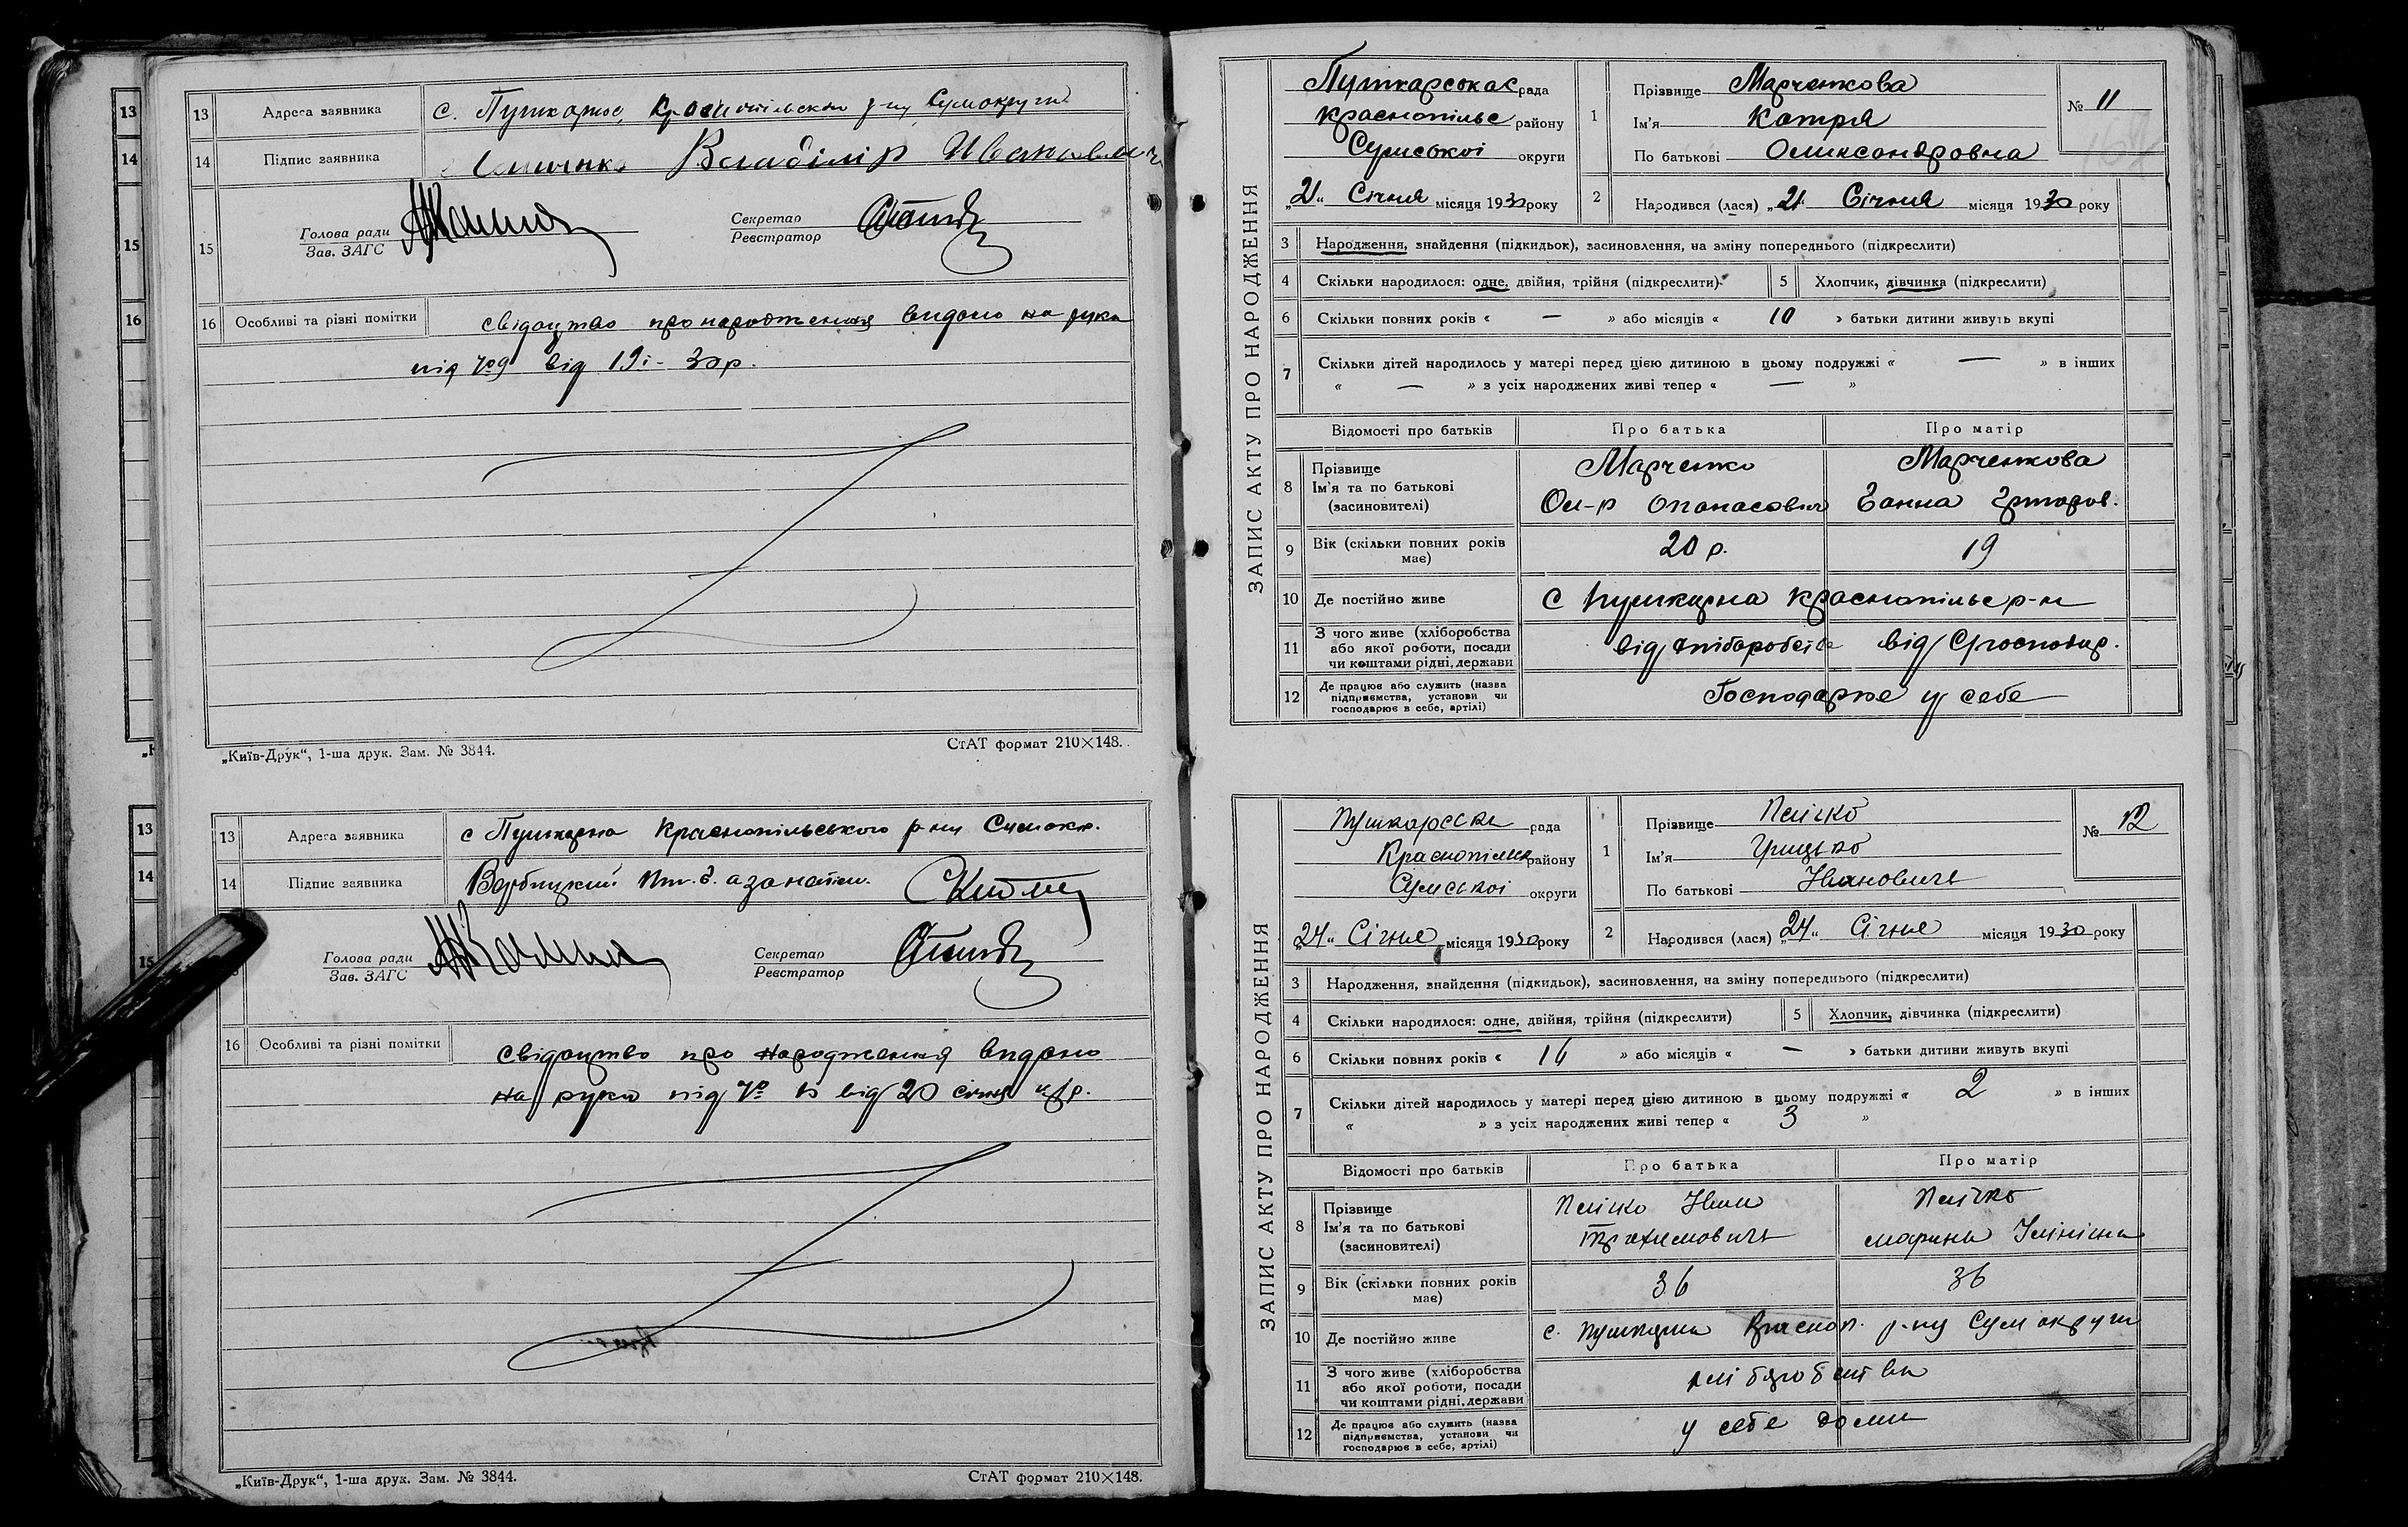 13 Адреса заявника с. Пушкарне, Краснопільськом р-ну Сумокруги
14 Підпис заявника Владімір Иванович
15 Голова ради
Зав. ЗАГС
Секретар
Реєстратор
16 Особливі та різні помітки свідоцтво про народження видано на руки
під № 9 від 19 і - 30 р.
„Київ-Друк“, 1-ша друк. Зам. № 3844. СтАТ формат 210×148.
13 Адреса заявника с Пушкарна Краснопільського р-ну Сумокр.
14 Підпис заявника Вербицкий
Голова ради
Зав. ЗАГС
Секретар
Реєстратор
16 Особливі та різні помітки свідоцтво про народження видано
на руки під № від 20 січня ц/р.
„Київ-Друк“, 1-ша друк. Зам. № 3844. СтАТ формат 210×148.
ЗАПИС АКТУ ПРО НАРОДЖЕННЯ
Пушкарська с рада
Краснопільс району
Сумської округи
„21“ Січня місяця 1930 року
1 Прізвище Марченкова
Ім'я Катря
По батькові Олександровна
№ 11
2 Народився (лася) „21“ Січня місяця 1930 року
3 Народження, знайдення (підкидьок), засиновлення, на зміну попереднього (підкреслити)
4 Скільки народилося: одне, двійня, трійня (підкреслити) 5 Хлопчик, дівчинка (підкреслити)
6 Скільки повних років « — » або місяців « 10 » батьки дитини живуть вкупі
7 Скільки дітей народилось у матері перед цією дитиною в цьому подружжі « — » в інших
« — » з усіх народжених живі тепер « — »
Відомості про батьків Про батька Про матір
8 Прізвище Ім'я та по батькові (засиновителі)
Марченко Ол-р Опанасович
Марченкова Ганна
9 Вік (скільки повних років має) 20 р. 19
10 Де постійно живе с Пушкарна Краснопільс р-н
11 З чого живе (хліборобства або якої роботи, посади чи коштами рідні, держави від хліборобства від С/господар.
12 Де працює або служить (назва підприємства, установи чи господарює в себе, артілі) Господарює у себе
ЗАПИС АКТУ ПРО НАРОДЖЕННЯ
Пушкарська рада
Краснопільськ району
Сумської округи
„24“ Січня місяця 1930 року
1 Прізвище
Ім'я Грицько
По батькові Іванович
№ 12
2 Народився (лася) „24“ Січня місяця 1930 року
3 Народження, знайдення (підкидьок), засиновлення, на зміну попереднього (підкреслити)
4 Скільки народилося: одне, двійня, трійня (підкреслити) 5 Хлопчик, дівчинка (підкреслити)
6 Скільки повних років « » або місяців « — » батьки дитини живуть вкупі
7 Скільки дітей народилось у матері перед цією дитиною в цьому подружжі « 2 » в інших
« » з усіх народжених живі тепер « 3 »
Відомості про батьків Про батька Про матір
8 Прізвище Ім'я та по батькові (засиновителі)
Іван
марина
9 Вік (скільки повних років має) 36 36
10 Де постійно живе с. Пушкарна Красноп. р-ну Сум округи
11 З чого живе (хліборобства або якої роботи, посади чи коштами рідні, держави хліборобства
12 Де працює або служить (назва підприємства, установи чи господарює в себе, артілі) у себе дома